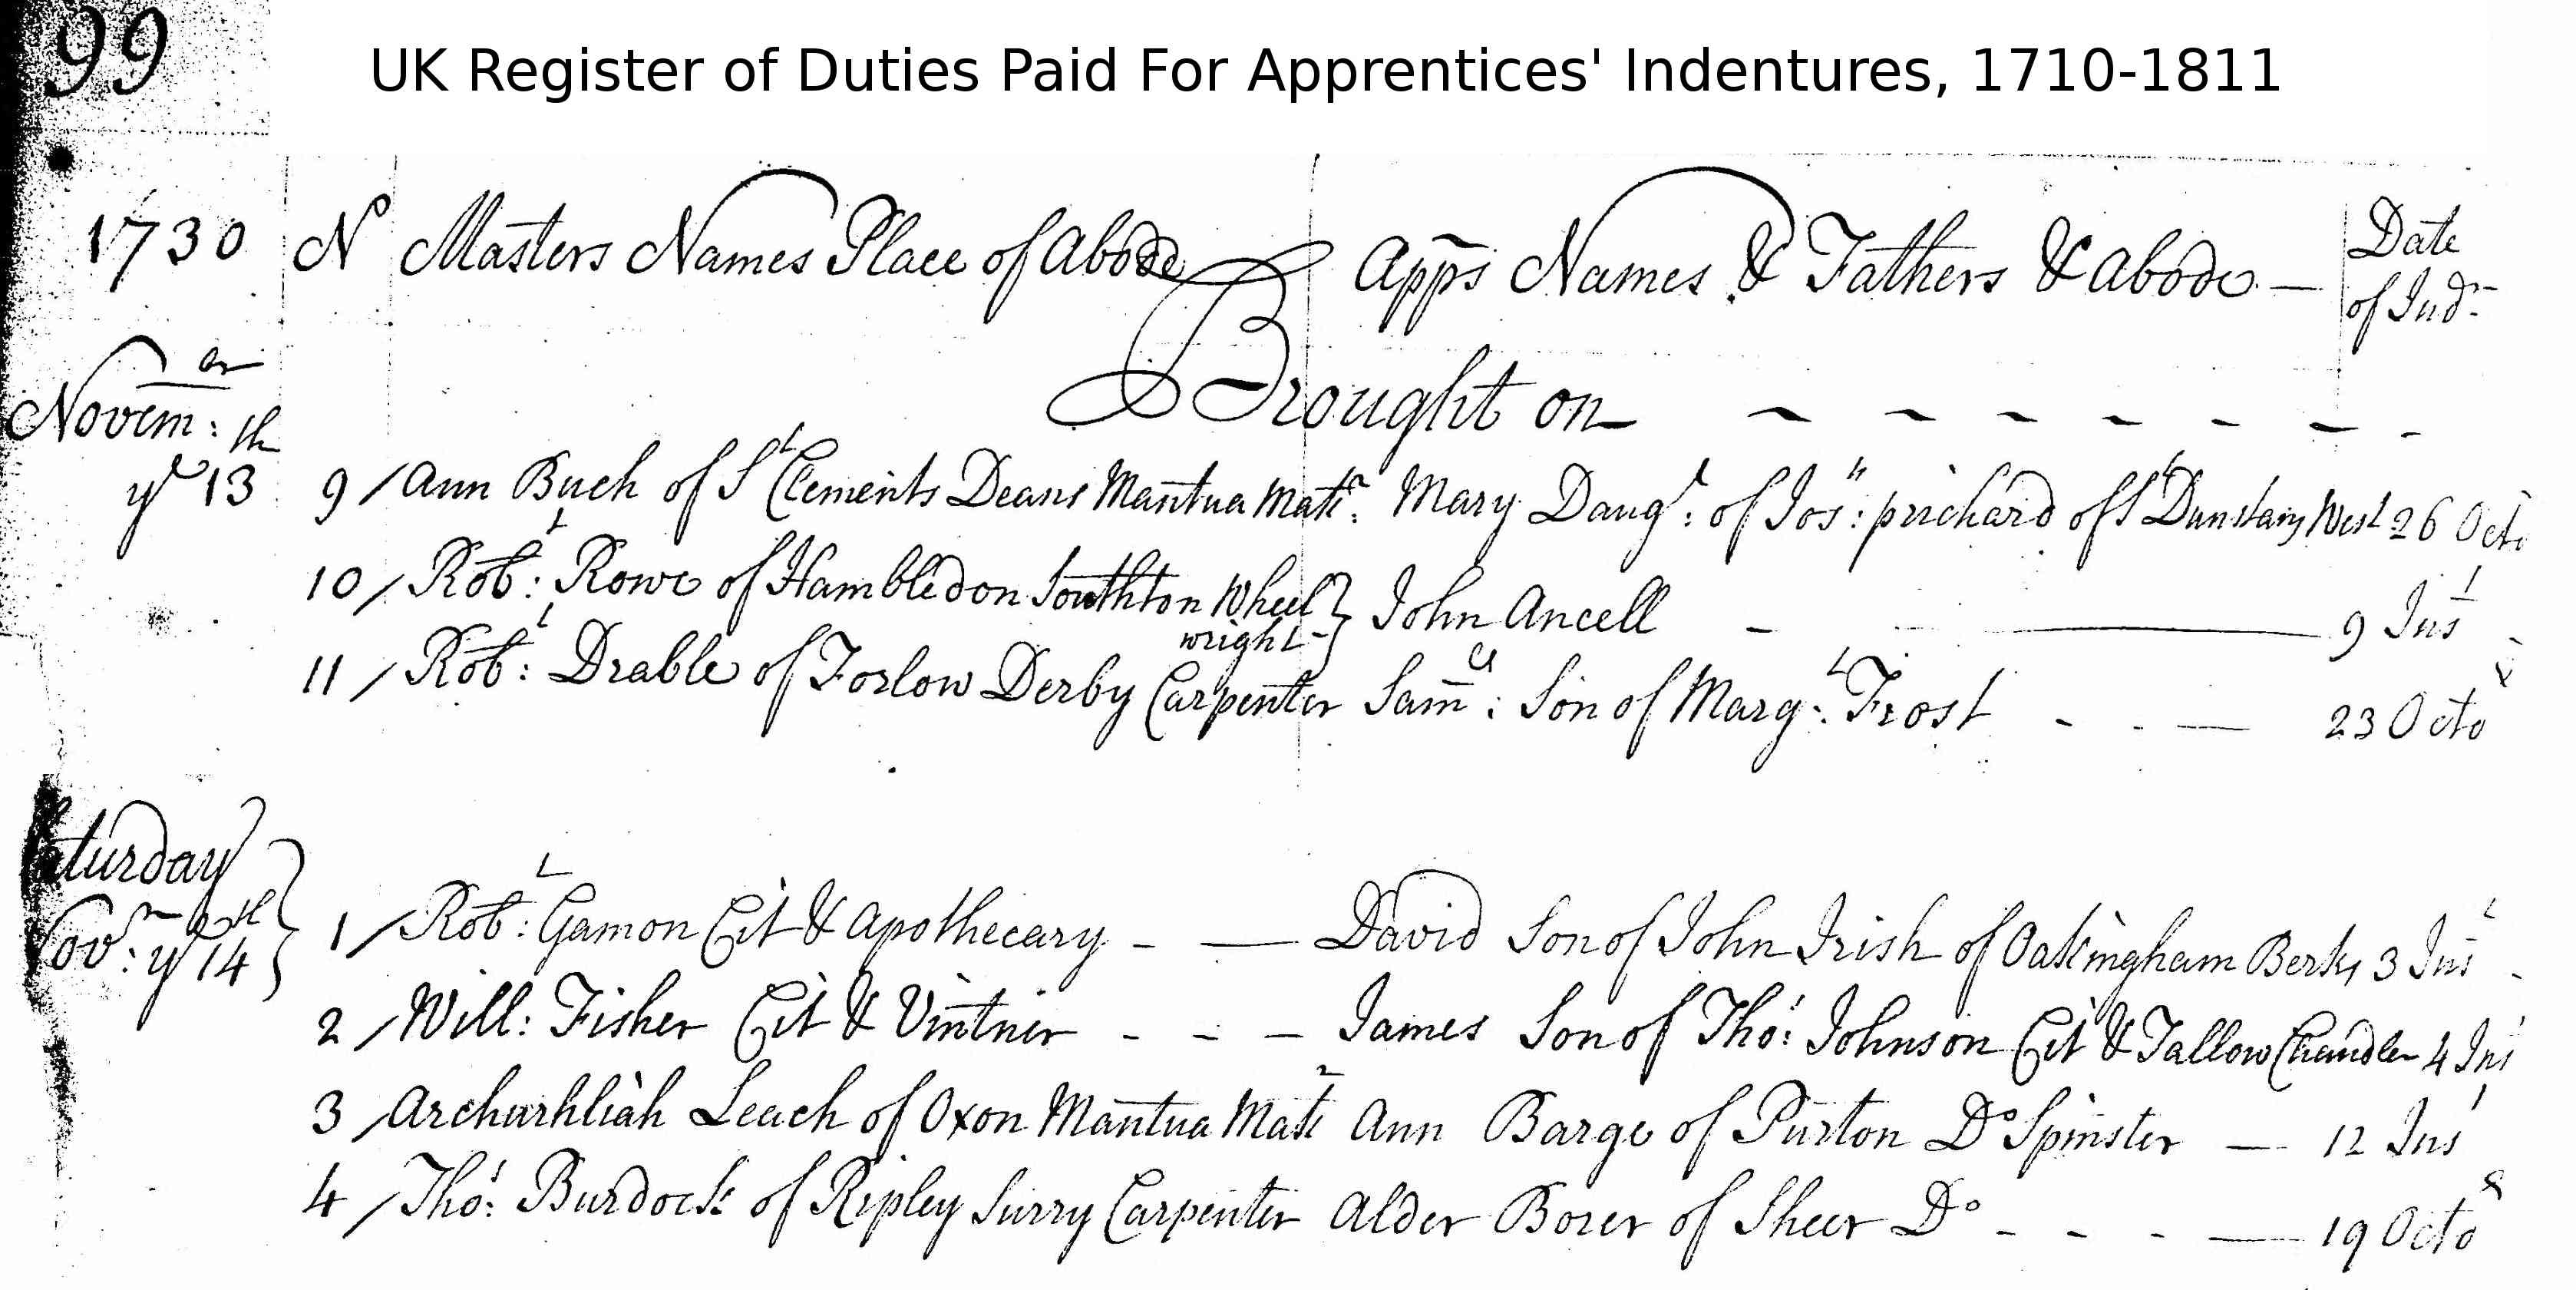 99
UK Register of Duties Paid For Apprentices' Indentures, 1710-1811
1730 No Masters Names Place of Abode Apps Names & Fathers & Abode — Date of Indr
Brought on - - - - - - -
Novem:er
ye 13th 9 / Ann Buch of St Clements Deans Mantua Makr: Mary Daugr: of Josh: prichard of St Dunstans West 26 Octo
10 / Robt: Rowe of Hambledon Southton Wheel wright } John Ancell - — 9 Inst
11 / Robt: Drable of Forlow Derby Carpenter Samll: Son of Margt: Frost - - — 23 Octor
Saturday
Novr: ye 14th } 1 / Robt: Gamon Cit & Apothecary - — David Son of John Irish of Oakingham Berks 3 Inst
2 / Will: Fisher Cit & Vintner - - - James Son of Thos: Johnson Cit & Tallow Chandler 4 Inst
3 / Leach of Oxon Mantua Makr Ann Barge of Purton Do Spinster — 12 Inst
4 / Thos: Burdock of Ripley Surry Carpenter Alder Borer of Sheer Do - - - — 19 Octor